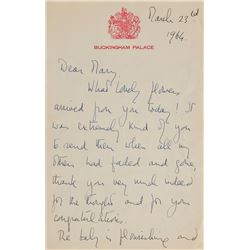 March 23rd
1964.
BUCKINGHAM PALACE
Dear Mary,
What lovely flowers
arrived from you today! It
was extremely kind of you
to send them when all my
others had faded and gone,
thank you very much indeed
for the thought and for your
congratulations.
The baby is flourishing and